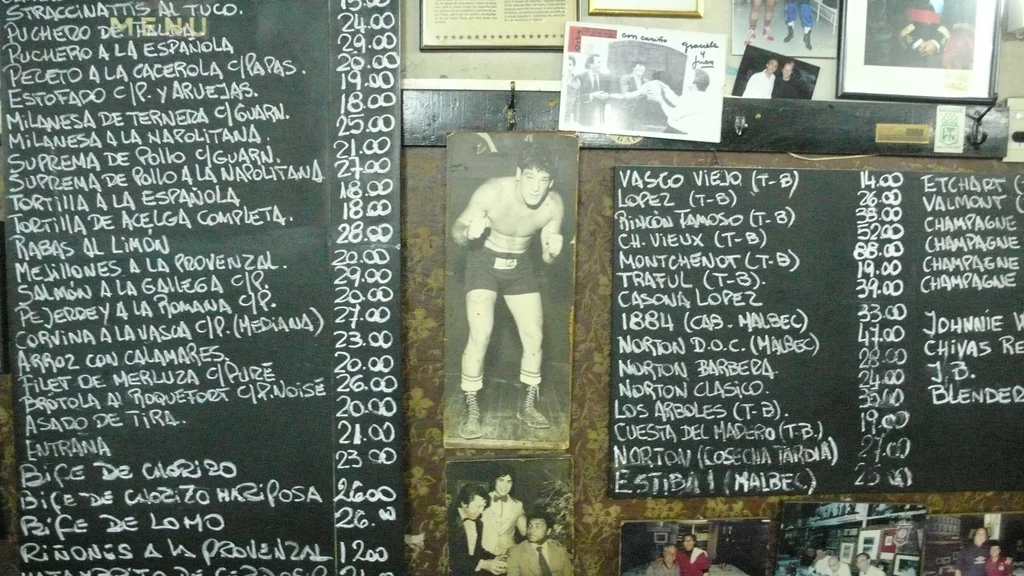 MENU
STRACCINATTIS AL TUCO.
PUCHERO DE
PUCHERO A LA ESPAÑOLA
PECETO A LA CACEROLA C/PAPAS.
ESTOFADO C/P. Y ARVEJAS.
MILANESA DE TERNERA C/GUARN.
MILANESA A LA NAPOLITANA.
SUPREMA DE POLLO C/GUARN.
SUPREMA DE POLLO A LA NAPOLITANA
TORTILLA A LA ESPAÑOLA
TORTILLA DE ACELGA COMPLETA.
RABAS AL LIMON
MEJILLONES A LA PROVENZAL.
SALMÓN A LA GALLEGA C/P.
PEJERREY A LA ROMANA C/P.
CORVINA A LA VASCA C/P. (MEDIANA)
ARROZ CON CALAMARES.
FILET DE MERLUZA C/PURE
BROTOLA AL ROQUEFORT C/P. NOISE
ASADO DE TIRA.
ENTRANA
BIFE DE CHORIZO
BIFE DE CHORIZO MARIPOSA
BIFE DE LOMO
RIÑONES A LA PROVENZAL
24.00
29.00
20.00
19.00
18.00
25.00
21.00
27.00
18.00
18.00
28.00
20.00
29.00
20.00
27.00
23.00
20.00
26.00
20.00
21.00
23.00
26.00
26.00
12.00
con cariño
Graciela
y
Juan
VASCO VIEJO (T-B) 14.00
LOPEZ (T-B) 26.00
RINCÓN FAMOSO (T-B) 38.00
CH. VIEUX (T-B) 52.00
MONTCHENOT (T-B) 88.00
TRAFUL (T-B) 19.00
CASONA LOPEZ 39.00
1884 (CAB-MALBEC) 33.00
NORTON D.O.C. (MALBEC) 47.00
NORTON BARBERA 28.00
NORTON CLASICO. 24.00
LOS ARBOLES (T-B).
CUESTA DEL MADERO (T-B.) 19.00
NORTON (COSECHA TARDIA) 27.00
ESTIBA I (MALBEC) 25.00
ETCHART (
VALMONT (
CHAMPAGNE
CHAMPAGNE
CHAMPAGNE
CHAMPAGNE
JOHNNIE W
CHIVAS RE
J.B.
BLENDED